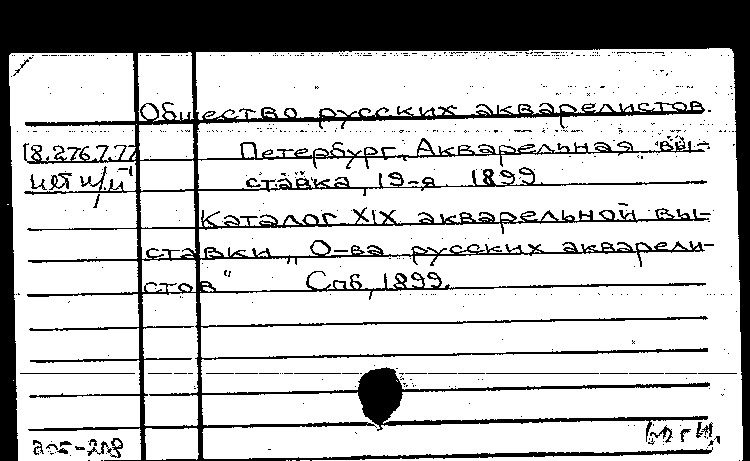 Общество русских акварелистов.
18.276.7.77 Петербург. Акварельная вы-
нет и/и ставка, 19-я 1899.
Каталог XIX акварельной вы-
ставки „О-ва русских акварели-
стов" Спб, 1899.
205-208